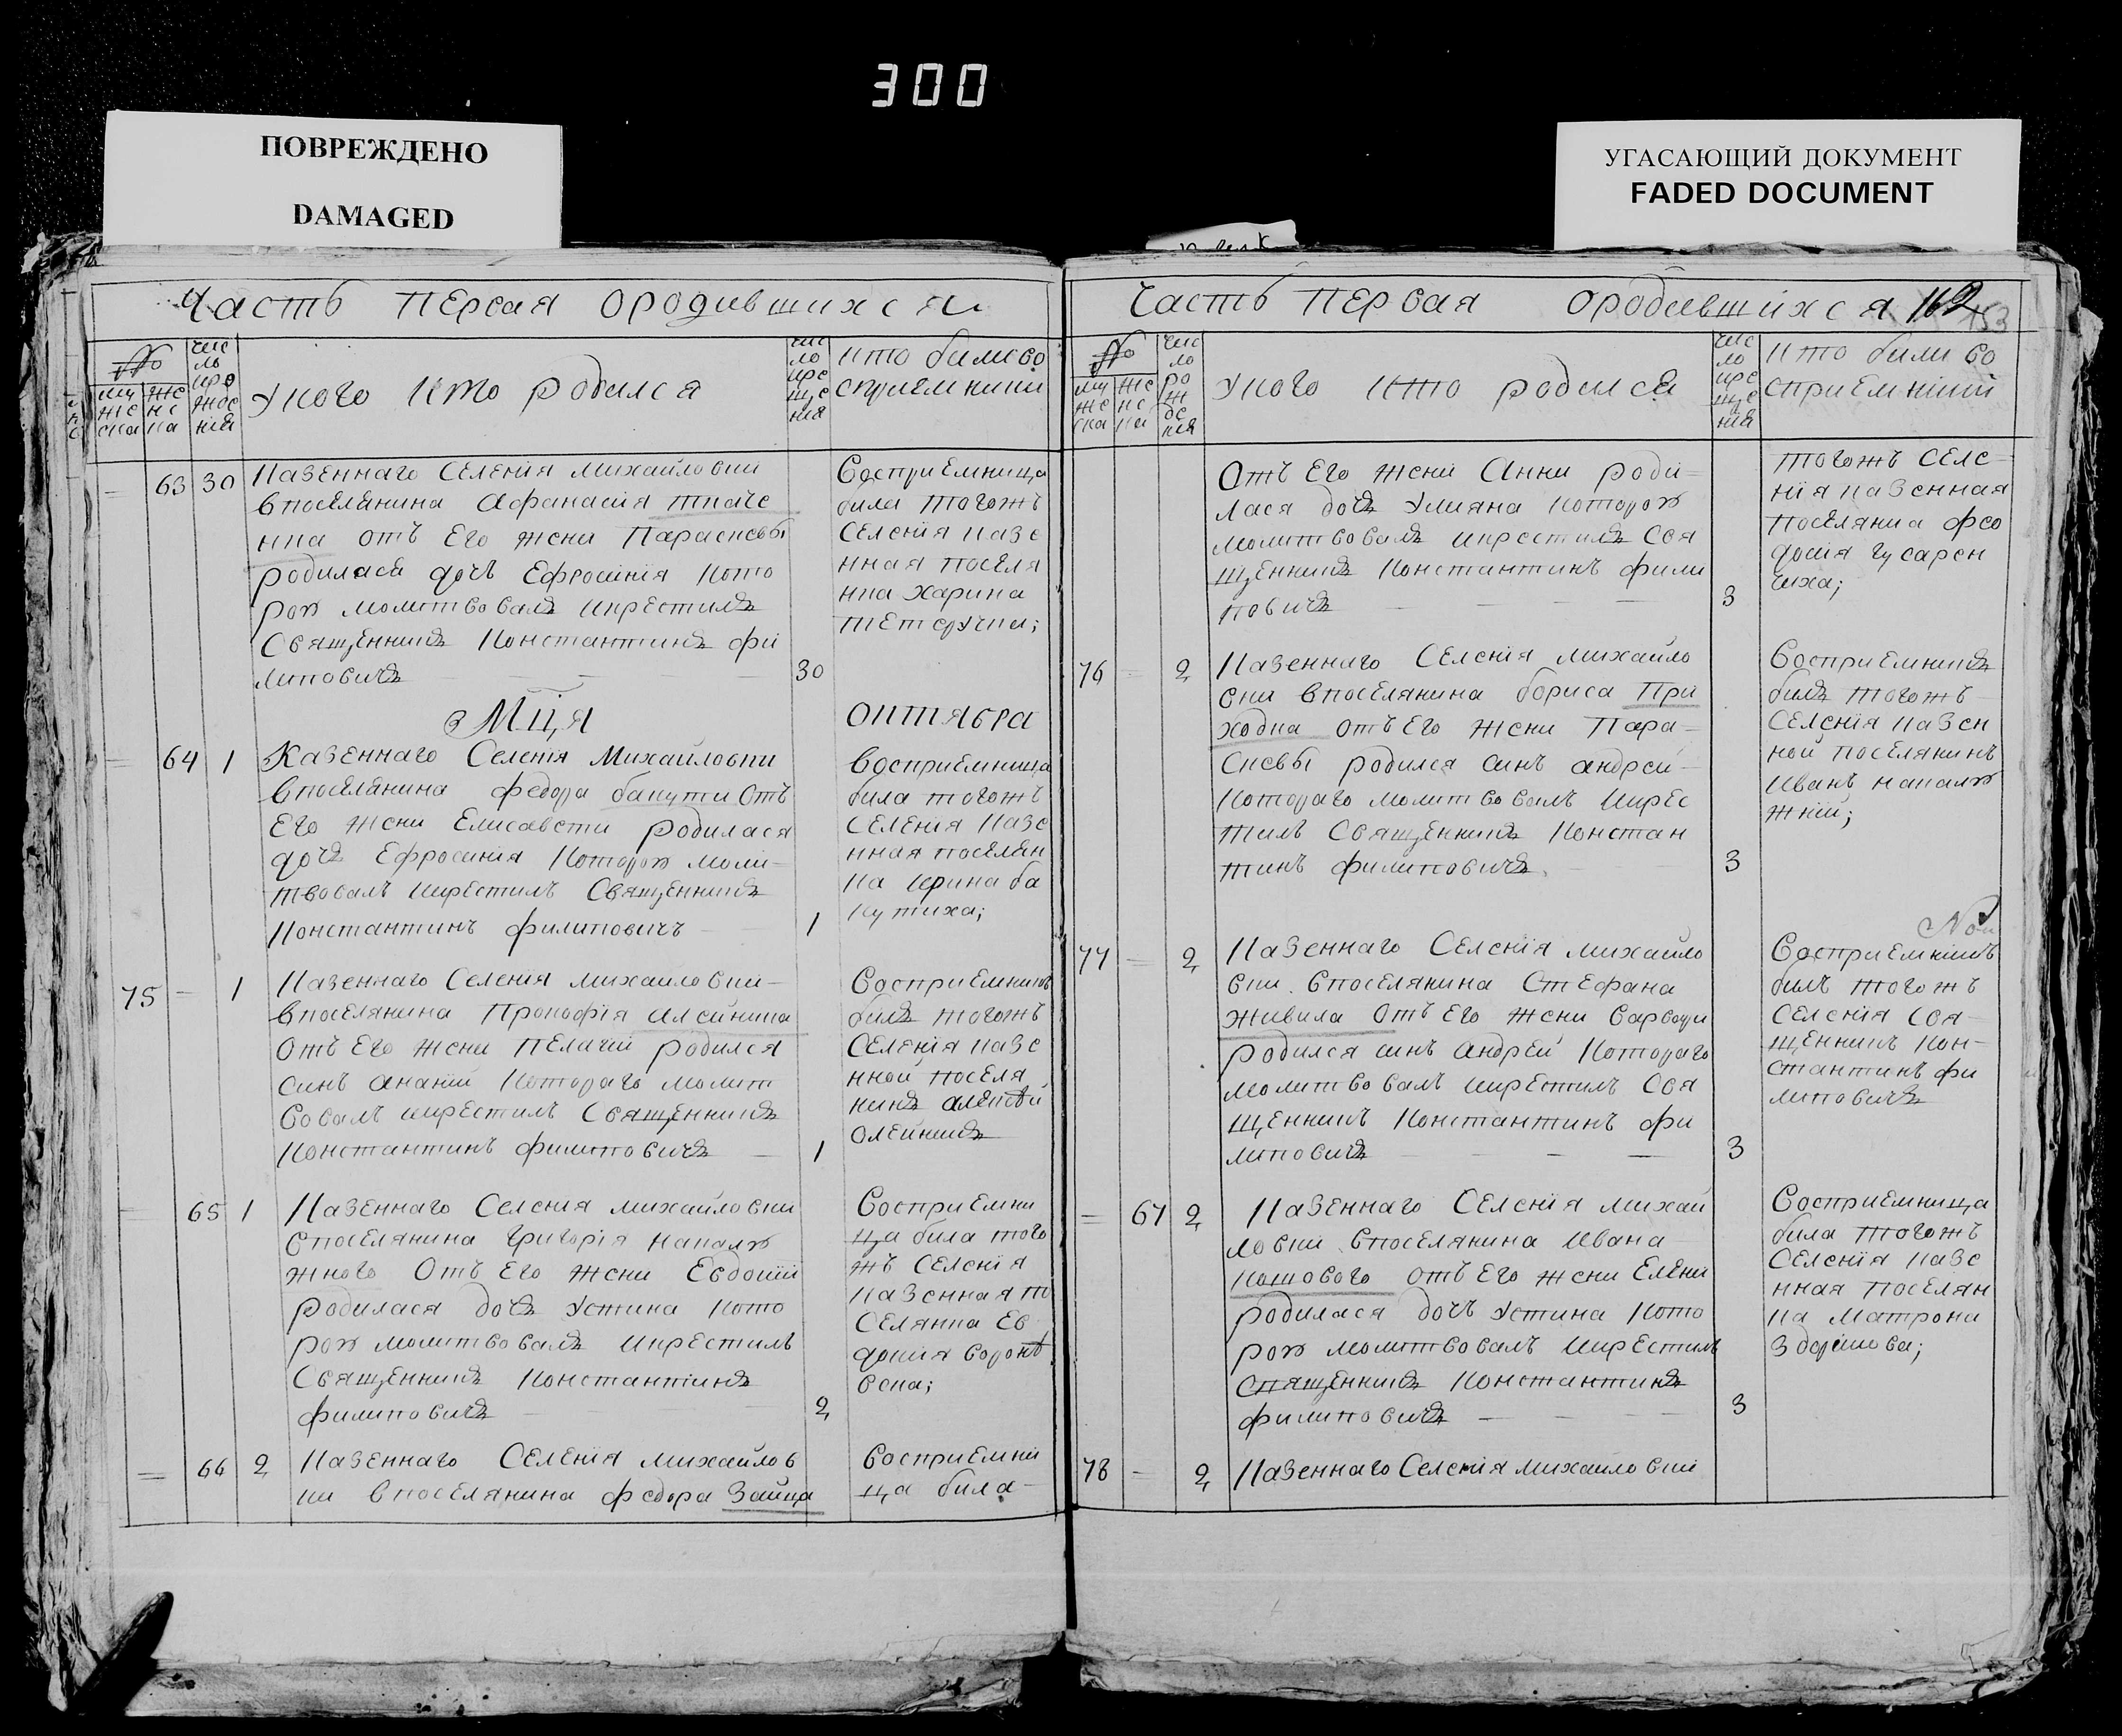 300
ПОВРЕЖДЕНО
DAMAGED
УГАСАЮЩИЙ ДОКУМЕНТ
FADED DOCUMENT
Часть Первая ородившихся
№
му
жс
ска
жс
нс
ка
чис
ло
ро
жде
нія
Укого кто родился
чис
ло
кре
ще
нія
кто били во
сприемники
63 30
Казеннаго Селенія Михайловки
впоселянина Афанасия Ткаче
нка отъ Его жени Параскевы
родилася дочъ Ефросинія кото
рою молитвовалъ икрестилъ
Священникъ Константинъ фи
липовичъ
30
Восприемница
била тогожъ
Селенія казе
нная поселя
нка Харина
Тетеручка;
Мця
октября
64 1
Казеннаго Селенія Михайловки
впоселянина Федора бакути отъ
Его жени Елисавети родилася
дочъ Ефросинія которою моли-
твовалъ икрестилъ Священникъ
Константинъ филиповичъ
1
восприемница
била тогожъ
Селенія казе
нная поселян
ка Ирина ба
кутиха;
75 - 1
Казеннаго Селенія Михайловки-
впоселянина Прокофія Алейника
отъ Его жени Пелагіи родился
синъ Ананіи котораго молит
вовалъ икрестилъ Священникъ
Константинъ филиповичъ
1
Восприемникъ
билъ тогожъ
Селенія казе
нной поселя
нинъ алексѣй
олейникъ
65 1
Казеннаго Селенія Михайловки
впоселянина Григорія Капелю
жного Отъ Его жени Евдокіи
родилася дочъ Устина кото
рою молитвовалъ икрестилъ
Священникъ Константинъ
филиповичъ
2
Восприемни
ца била того
жъ Селенія
казенная по
селянка Ев
докия
вска;
66 2
Казеннаго Селенія Михайлов
ки впоселянина федора Зайца
восприемни
ца била-
Часть Первая ородившихся 162
153
№
му
жс
ска
жс
нс
ка
чис
ло
ро
ж
де
нія
Укого кто родился
чис
ло
кре
ще
нія
кто били во
сприемники
Отъ Его жени Анни роди-
лася дочъ Улияна которою
молитвовалъ икрестилъ Свя
щенникъ Константинъ фили
повичъ
3
тогожъ Селе-
нія казенная
поселянка фео
досія гусарен
чиха;
76 - 2
Казеннаго Селенія Михайло
вки впоселянина бориса При
ходка отъ Его жени Пара-
скевы родился синъ андрей-
котораго молитвовалъ икрес
тилъ Священникъ Констан
тинъ филиповичъ
3
Восприемникъ
билъ тогожъ
Селенія казен
ной поселянинъ
Иванъ капелю
жній;
77 - 2
Казеннаго Селенія Михайло
вки впоселянина Стефана
Живила отъ Его жени варвари
родился синъ андрей котораго
молитвовалъ икрестилъ Свя
щенникъ Константинъ фи
липовичъ
3
Восприемникъ
билъ тогожъ
Селенія Свя-
щенникъ Кон-
стантинъ фи
липовичъ
67 2
Казеннаго Селенія Михай
ловки впоселянина Ивана
Кошового отъ Его жени Елени
родилася дочъ Устина кото
рою молитвовалъ икрестилъ
Священникъ Константинъ
филиповичъ
3
Восприемница
била тогожъ
Селенія казе
нная поселян
ка Матрона
78 - 2
Казеннаго Селенія Михайловки